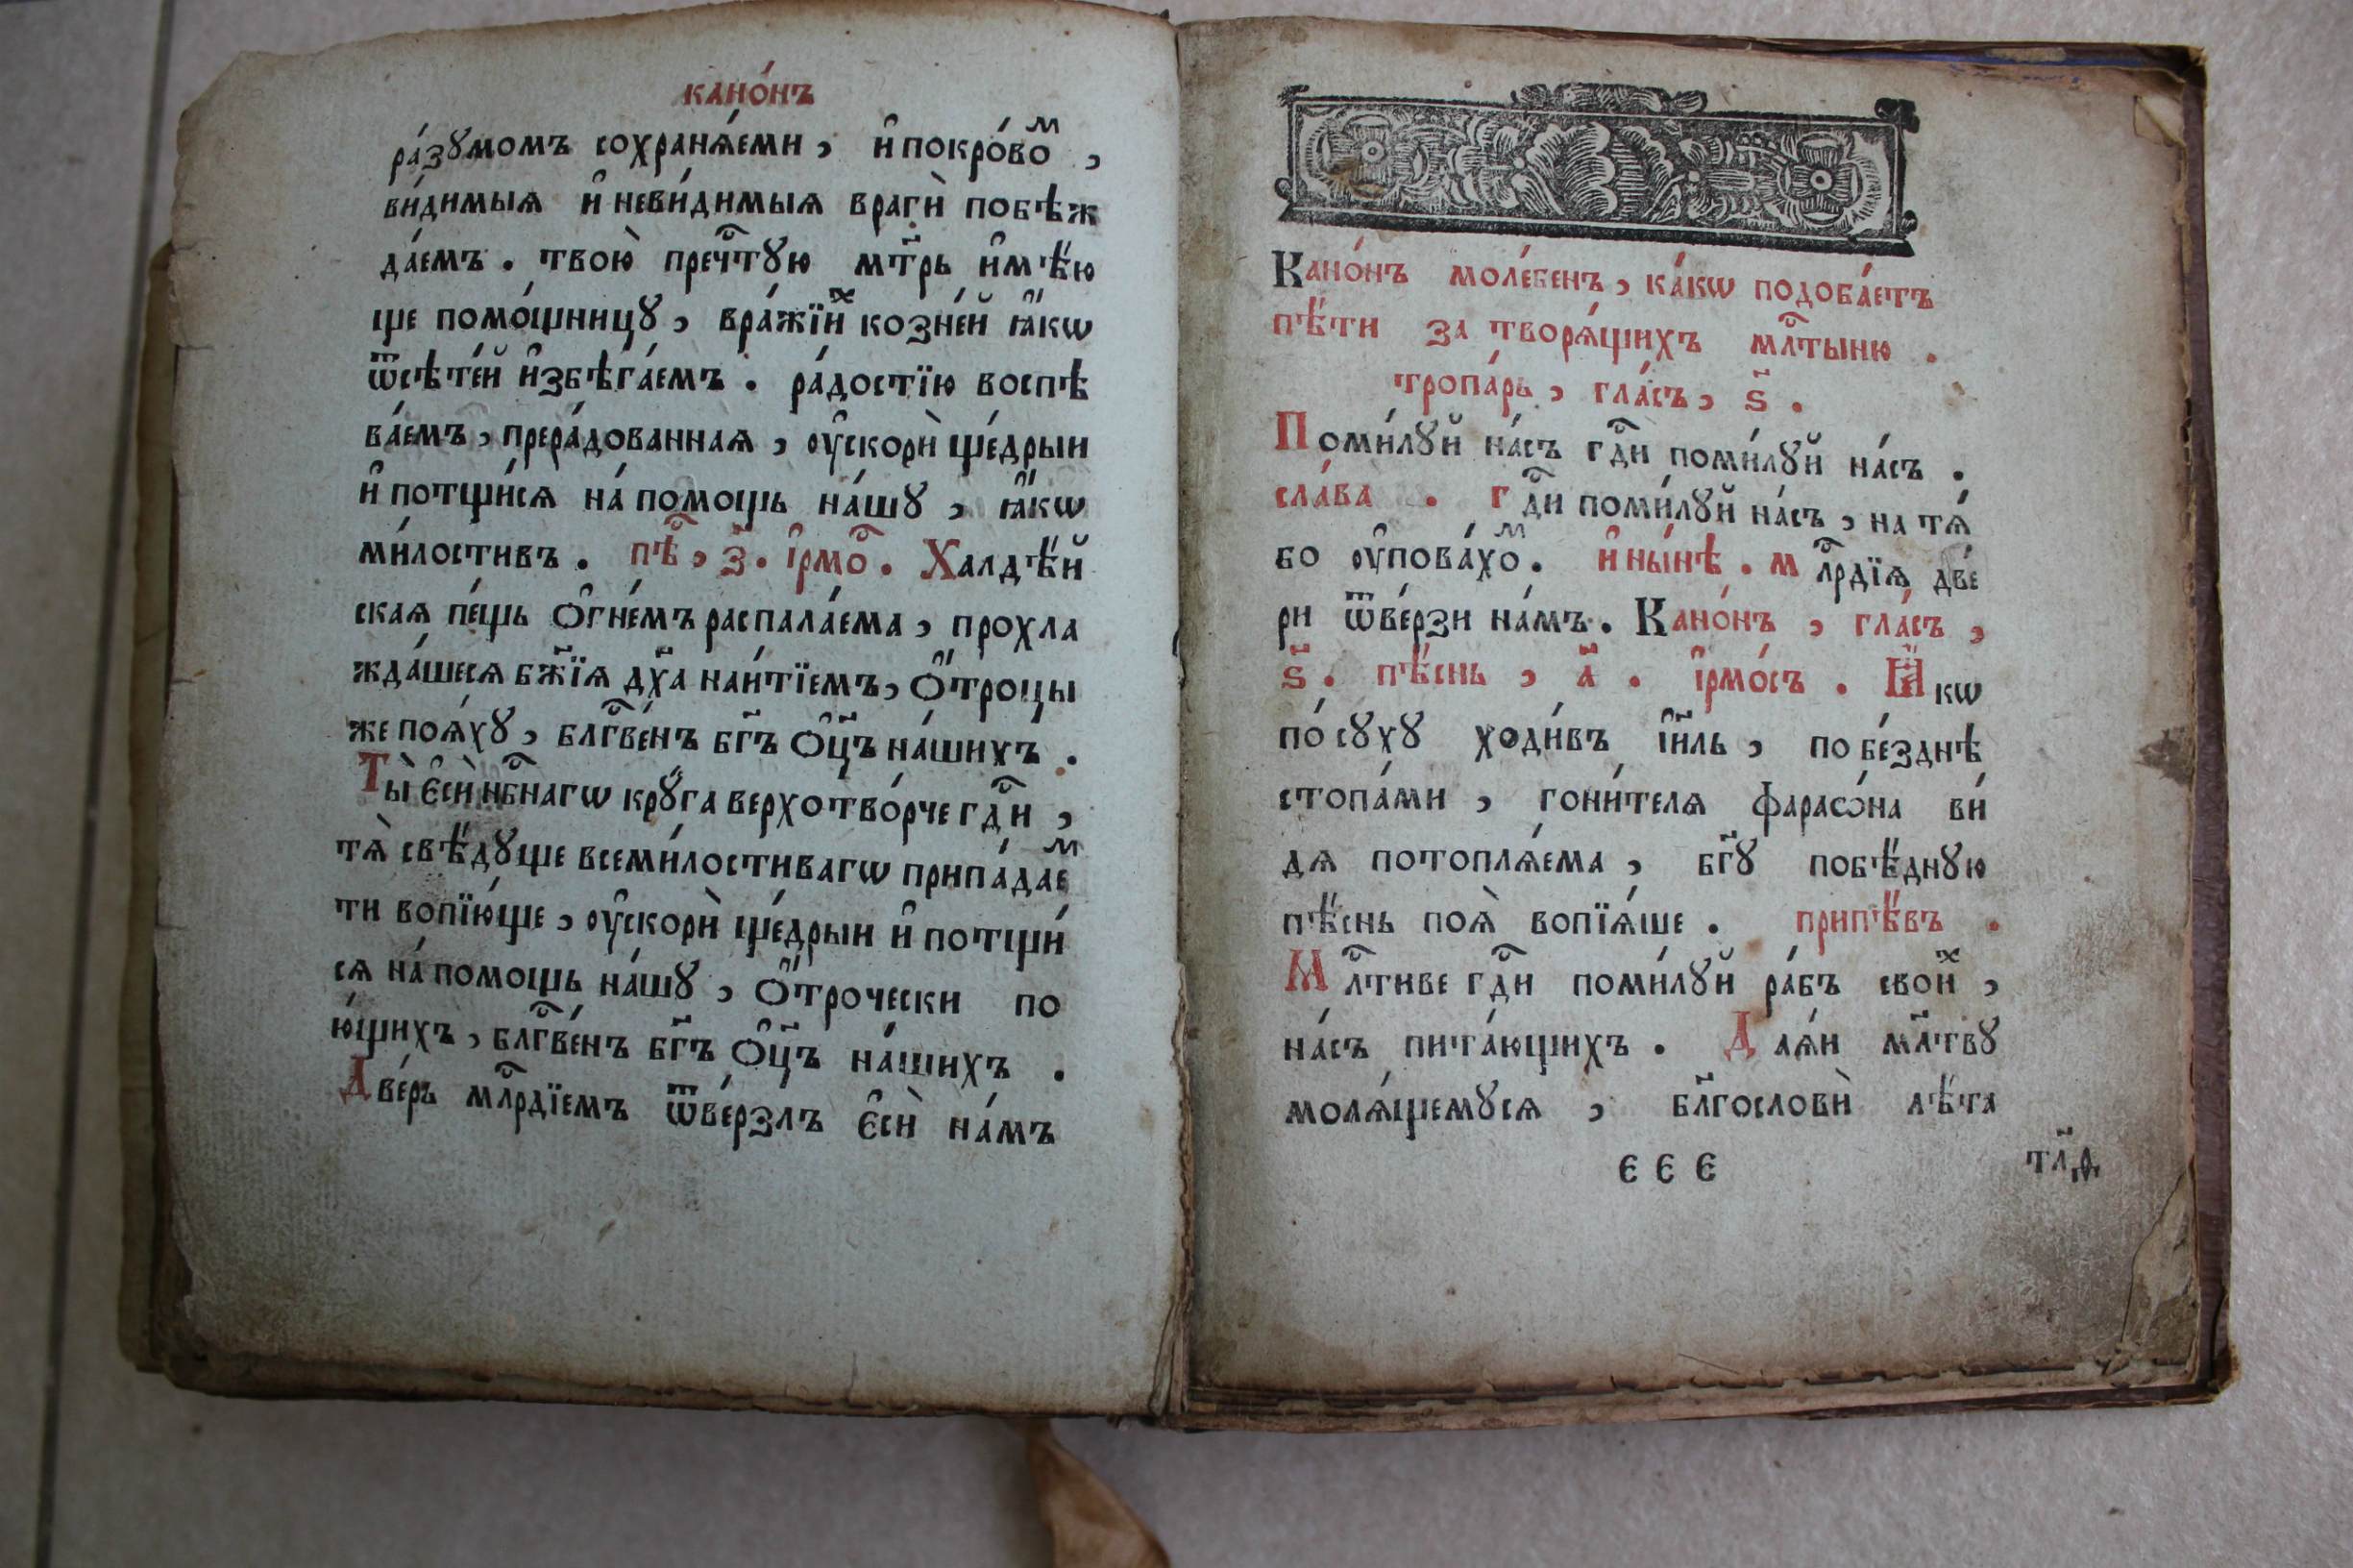 кано́нъ
ра́зꙋмомъ сохранѧ́еми, и҆ покро́воⷨ,
ви́димыѧ и҆ неви́димыѧ врагѝ побѣж
да́емъ. твою̀ пречⷭ҇тꙋю мт҃рь и҆мѣ́ю
ще помо́щницꙋ, вра́жїиⷯ ко́зней ꙗ҆́кѡ
ѿсѣте́й и҆збѣга́емъ. ра́достїю воспѣ
ва́емъ, прера́дованнаѧ, оу҆скорѝ ще́дрыи
и҆ потщи́сѧ на́ помощь на́шꙋ, ꙗ҆́кѡ
ми́лостивъ. пѣⷭ҇, з҃. і҆рмоⷭ҇. Халдѣ́й
скаѧ пе́щь ѻ҆гне́мъ распала́ема, прохла
жда́шесѧ бж҃їѧ дх҃а наи́тїемъ, ѻ҆́троцы
же поѧ́хꙋ, блгⷭ҇ве́нъ бг҃ъ ѻ҆ц҃ъ на́шихъ.
Ты̀ є҆сѝ нбⷭ҇нагѡ крꙋ́га верхотво́рче гдⷭ҇и,
тѧ̀ свѣ́дꙋще всеми́лостивагѡ припа́даеⷨ
ти вопїю́ще, оу҆скорѝ ще́дрыи и҆ потщи́
сѧ на́ помощь на́шꙋ, ѻ҆́трочески по
ю́щихъ, блгⷭ҇ве́нъ бг҃ъ ѻ҆ц҃ъ на́шихъ.
Две́рь млⷭ҇рдїемъ ѿве́рзлъ є҆сѝ на́мъ
Кано́нъ моле́бенъ, ка́кѡ подоба́етъ
пѣ́ти за творѧ́щихъ млⷭ҇тыню.
тропа́рь, гла́съ, ѕ҃.
Поми́лꙋй на́съ гдⷭ҇и поми́лꙋй на́съ.
сла́ва. гдⷭ҇и поми́лꙋй на́съ, на тѧ́
бо оу҆пова́хоⷨ. и҆ ны́нѣ. млⷭ҇рдїѧ две́
ри ѿве́рзи на́мъ. Кано́нъ, гла́съ,
ѕ҃. пѣ́снь, а҃. і҆рмо́съ. Ꙗ҆́кѡ
по́ сꙋхꙋ ходи́въ і҆и҃ль, по бе́зднѣ
стопа́ми, гони́телѧ фараѡ́на ви́
дѧ потоплѧ́ема, бг҃ꙋ побѣ́днꙋю
пѣ́снь поѧ̀ вопїѧ́ше. припѣ́въ.
Млⷭ҇тиве гдⷭ҇и поми́лꙋй ра́бъ свои́ⷯ,
на́съ пита́ющихъ. Даѧ́и мл҃твꙋ
молѧ́щемꙋсѧ, бл҃гословѝ лѣ́та
є є є
тл҃д